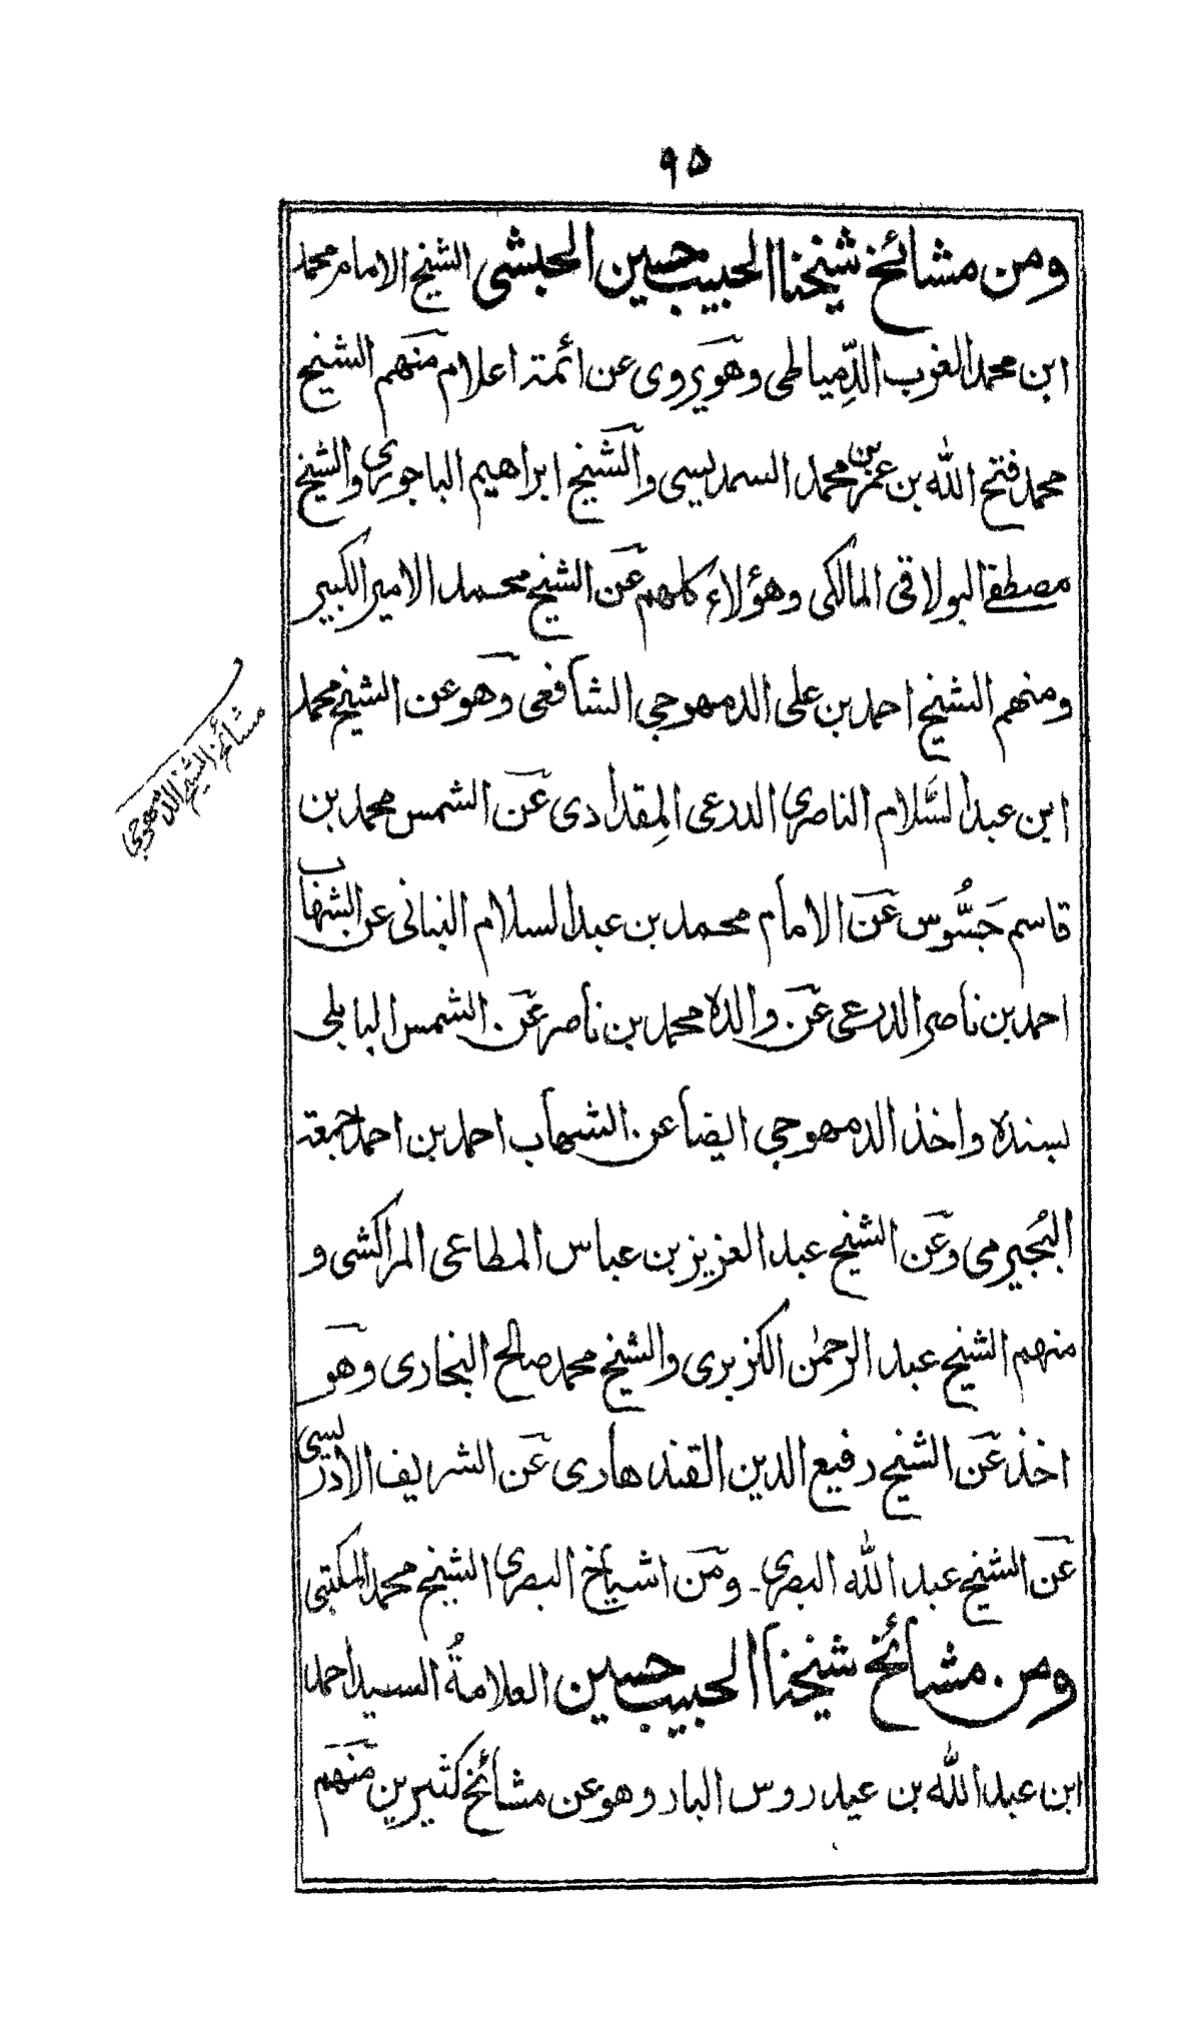 ۹۵
ومن مشائخ شيخنا الحبيب حسين الحبشى الشيخ الامام محمد
ابن محمد الغرب الدِّمياطى وهو يروى عن ائمة اعلام منهم الشيخ
محمد فتح الله بن عمر بن محمد السمديسى والشيخ ابراهيم الباجورى والشيخ
مصطفے البولاقى المالكى وهؤلاء كلهم عن الشيخ محمد الامير الكبير
ومنهم الشيخ احمد بن على الدمهوجى الشافعى وهو عن الشيخ محمد
ابن عبد السَّلام الناصرى الدرعى المِقدادى عن الشمس محمد بن
قاسم جَسُّوس عن الامام محمد بن عبد السلام البنانى عن الشهاب
احمد بن ناصر الدرعى عن والده محمد بن ناصر عن الشمس البابلى
بسنده واخذ الدمهوجى ايضا عن الشهاب احمد بن احمد جمعة
البُجيرمى وعن الشيخ عبد العزيز بن عباس المطاعى المراكشى و
منهم الشيخ عبد الرحمٰن الكزبرى والشيخ محمد صالح البخارى وهو
اخذ عن الشيخ رفيع الدين القندهارى عن الشريف الادريسى
عن الشيخ عبد الله البصرى ۔ ومن اشياخ البصرى الشيخ محمد المكتبى
ومن مشائخ شيخنا الحبيب حسين العلامةُ السيد احمد
ابن عبد الله بن عيدروس البار وهو عن مشائخ كثيرين منهم
مشائخ الشيخ الدمهوجى